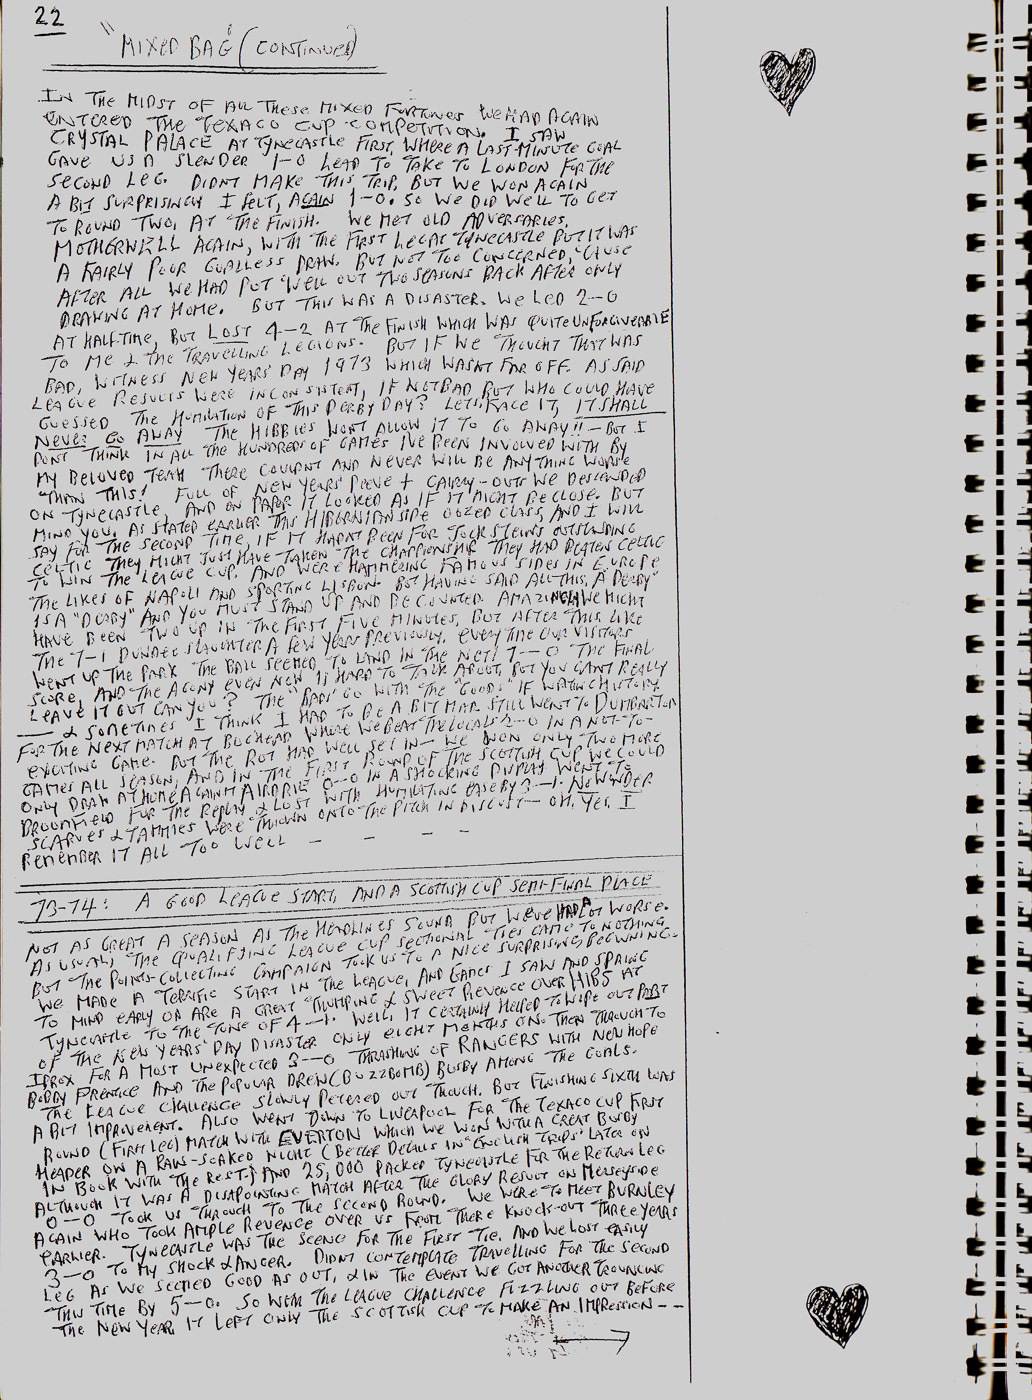 22
"MIXED BAG" (CONTINUED)
IN THE MIDST OF ALL THESE MIXED FORTUNES WE HAD AGAIN
ENTERED THE TEXACO CUP COMPETITION. I SAW
CRYSTAL PALACE AT TYNECASTLE FIRST, WHERE A LAST-MINUTE GOAL
GAVE US A SLENDER 1-0 LEAD TO TAKE TO LONDON FOR THE
SECOND LEG. DIDNT MAKE THIS TRIP, BUT WE WON AGAIN
A BIT SURPRISINGLY I FELT, AGAIN 1-0. SO WE DID WELL TO GET
TO ROUND TWO, AT THE FINISH. WE MET OLD ADVERSARIES,
MOTHERWELL AGAIN, WITH THE FIRST LEG AT TYNECASTLE BUT IT WAS
A FAIRLY POOR GOALLESS DRAW. BUT NOT TOO CONCERNED, 'CAUSE
AFTER ALL WE HAD PUT 'WELL OUT TWO SEASONS BACK AFTER ONLY
DRAWING AT HOME. BUT THIS WAS A DISASTER. WE LED 2-0
AT HALF-TIME, BUT LOST 4-2 AT THE FINISH WHICH WAS QUITE UNFORGIVEABLE
TO ME & THE TRAVELLING LEGIONS. BUT IF WE THOUGHT THAT WAS
BAD, WITNESS NEW YEARS' DAY 1973 WHICH WASNT FAR OFF. AS SAID
LEAGUE RESULTS WERE INCONSISTENT, IF NOT BAD BUT WHO COULD HAVE
GUESSED THE HUMILIATION OF THIS DERBY DAY? LETS FACE IT, IT SHALL
NEVER GO AWAY THE HIBBIES WONT ALLOW IT TO GO AWAY!! - BUT I
DONT THINK IN ALL THE HUNDREDS OF GAMES I'VE BEEN INVOLVED WITH BY
MY BELOVED TEAM THERE COULDNT AND NEVER WILL BE ANYTHING WORSE
THAN THIS! FULL OF NEW YEARS' PEEVE + CAIRRY-OUTS WE DESCENDED
ON TYNECASTLE, AND ON PAPER IT LOOKED AS IF IT MIGHT BE CLOSE. BUT
MIND YOU, AS STATED EARLIER THIS HIBERNIAN SIDE OOZED CLASS, AND I WILL
SAY FOR THE SECOND TIME, IF IT HADNT BEEN FOR JOCK STEIN'S OUTSTANDING
CELTIC THEY MIGHT JUST HAVE TAKEN THE CHAMPIONSHIP THEY HAD BEATEN CELTIC
TO WIN THE LEAGUE CUP, AND WERE HAMMERING FAMOUS SIDES IN EUROPE
THE LIKES OF NAPOLI AND SPORTING LISBON. BUT HAVING SAID ALL THIS, A "DERBY"
IS A "DERBY" AND YOU MUST STAND UP AND BE COUNTED. AMAZINGLY WE MIGHT
HAVE BEEN TWO UP IN THE FIRST FIVE MINUTES, BUT AFTER THIS, LIKE
THE 7-1 DUNDEE SLAUGHTER A FEW YEARS PREVIOUSLY, EVERYTIME OUR VISITORS
WENT UP THE PARK THE BALL SEEMED TO LAND IN THE NET! 7-0 THE FINAL
SCORE, AND THE AGONY EVEN NOW IS HARD TO TALK ABOUT, BUT YOU CANT REALLY
LEAVE IT OUT CAN YOU? THE "BADS" GO WITH THE "GOODS" IF WRITING HISTORY
- & SOMETIMES I THINK I HAD TO BE A BIT MAD. STILL WENT TO DUMBARTON
FOR THE NEXT MATCH AT BOGHEAD WHERE WE BEAT THE LOCALS 2-0 IN A NOT-TO-
EXCITING GAME. BUT THE ROT HAD WELL SET IN - WE WON ONLY TWO MORE
GAMES ALL SEASON, AND IN THE FIRST ROUND OF THE SCOTTISH CUP WE COULD
ONLY DRAW AT HOME AGAINST AIRDRIE 0-0 IN A SHOCKING DISPLAY WENT TO
BROOMFIELD FOR THE REPLAY & LOST WITH HUMILIATING EASE BY 3-1. NO WONDER
SCARVES & TAMMIES WERE THROWN ONTO THE PITCH IN DISGUST - OH, YES, I
REMEMBER IT ALL TOO WELL - - - -
73-74: A GOOD LEAGUE START, AND A SCOTTISH CUP SEMI-FINAL PLACE
NOT AS GREAT A SEASON AS THE HEADLINES SOUND BUT WE'VE HAD A LOT WORSE.
AS USUAL, THE QUALIFYING LEAGUE CUP SECTIONAL TIES CAME TO NOTHING
BUT THE POINTS-COLLECTING CAMPAIGN TOOK US TO A NICE SURPRISING BEGINNING.
WE MADE A TERRIFIC START IN THE LEAGUE, AND GAMES I SAW AND SPRING
TO MIND EARLY ON ARE A GREAT THUMPING & SWEET REVENGE OVER HIBS AT
TYNECASTLE TO THE TUNE OF 4-1. WELL, IT CERTAINLY HELPED TO WIPE OUT PART
OF THE NEW YEARS' DAY DISASTER ONLY EIGHT MONTHS ON. THEN THROUGH TO
IBROX FOR A MOST UNEXPECTED 3-0 THRASHING OF RANGERS WITH NEW HOPE
BOBBY PRENTICE AND THE POPULAR DREW (BUZZBOMB) BUSBY AMONG THE GOALS.
THE LEAGUE CHALLENGE SLOWLY PETERED OUT THOUGH, BUT FINISHING SIXTH WAS
A BIT IMPROVEMENT. ALSO WENT DOWN TO LIVERPOOL FOR THE TEXACO CUP FIRST
ROUND (FIRST LEG) MATCH WITH EVERTON WHICH WE WON WITH A GREAT BUSBY
HEADER ON A RAIN-SOAKED NIGHT (BETTER DETAILS IN "ENGLISH TRIPS" LATER ON
IN BOOK WITH THE REST!) AND 25,000 PACKED TYNECASTLE FOR THE RETURN LEG
ALTHOUGH IT WAS A DISAPOINTING MATCH AFTER THE GLORY RESULT ON MERSEYSIDE
0-0 TOOK US THROUGH TO THE SECOND ROUND. WE WERE TO MEET BURNLEY
AGAIN WHO TOOK AMPLE REVENGE OVER US FROM THERE KNOCK-OUT THREE YEARS
EARLIER. TYNECASTLE WAS THE SCENE FOR THE FIRST TIE, AND WE LOST EASILY
3-0 TO MY SHOCK & ANGER. DIDNT CONTEMPLATE TRAVELLING FOR THE SECOND
LEG AS WE SEEMED GOOD AS OUT, & IN THE EVENT WE GOT ANOTHER TROUNCING
THIS TIME BY 5-0. SO WITH THE LEAGUE CHALLENGE FIZZLING OUT BEFORE
THE NEW YEAR IT LEFT ONLY THE SCOTTISH CUP TO MAKE AN IMPRESSION --